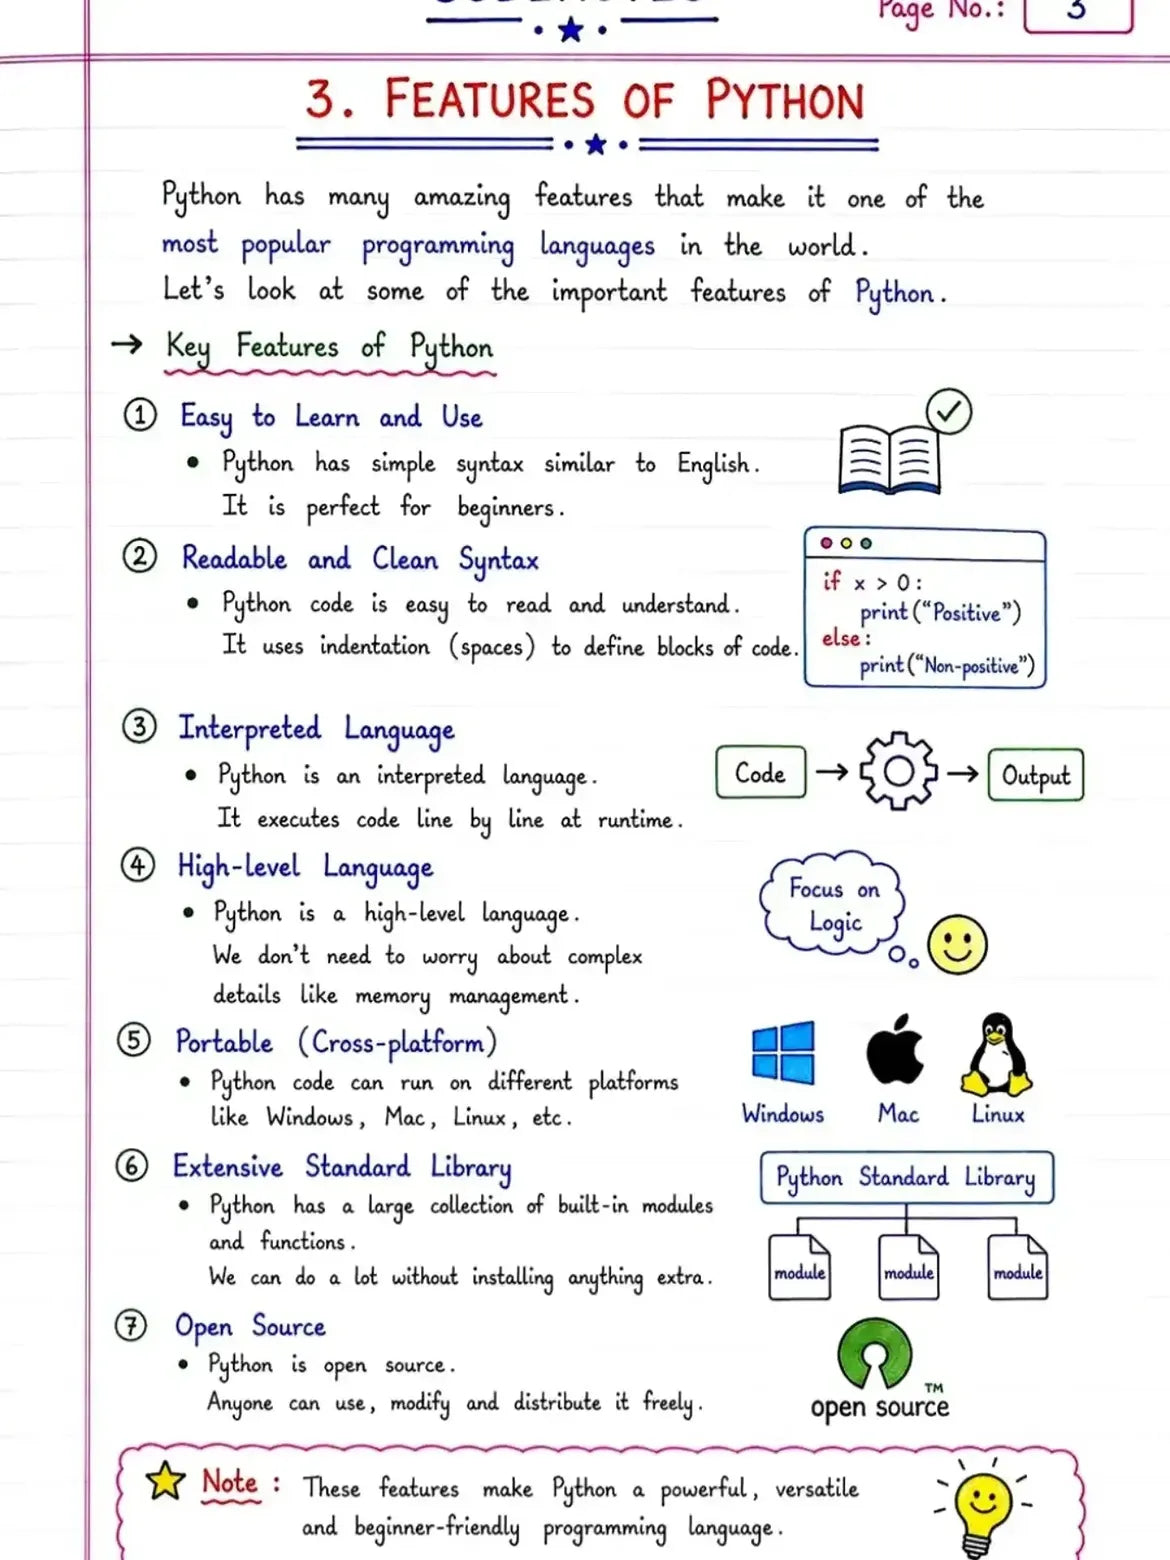 Page No.: 3
3. FEATURES OF PYTHON
Python has many amazing features that make it one of the
most popular programming languages in the world.
Let's look at some of the important features of Python.
→ Key Features of Python
1 Easy to Learn and Use
• Python has simple syntax similar to English.
It is perfect for beginners.
2 Readable and Clean Syntax
• Python code is easy to read and understand.
It uses indentation (spaces) to define blocks of code.
if x > 0:
print("Positive")
else:
print("Non-positive")
3 Interpreted Language
• Python is an interpreted language.
It executes code line by line at runtime.
Code → → Output
4 High-level Language
• Python is a high-level language.
We don't need to worry about complex
details like memory management.
Focus on
Logic
5 Portable (Cross-platform)
• Python code can run on different platforms
like Windows, Mac, Linux, etc.
Windows Mac Linux
6 Extensive Standard Library
• Python has a large collection of built-in modules
and functions.
We can do a lot without installing anything extra.
Python Standard Library
module module module
7 Open Source
• Python is open source.
Anyone can use, modify and distribute it freely.
TM
open source
Note : These features make Python a powerful, versatile
and beginner-friendly programming language.